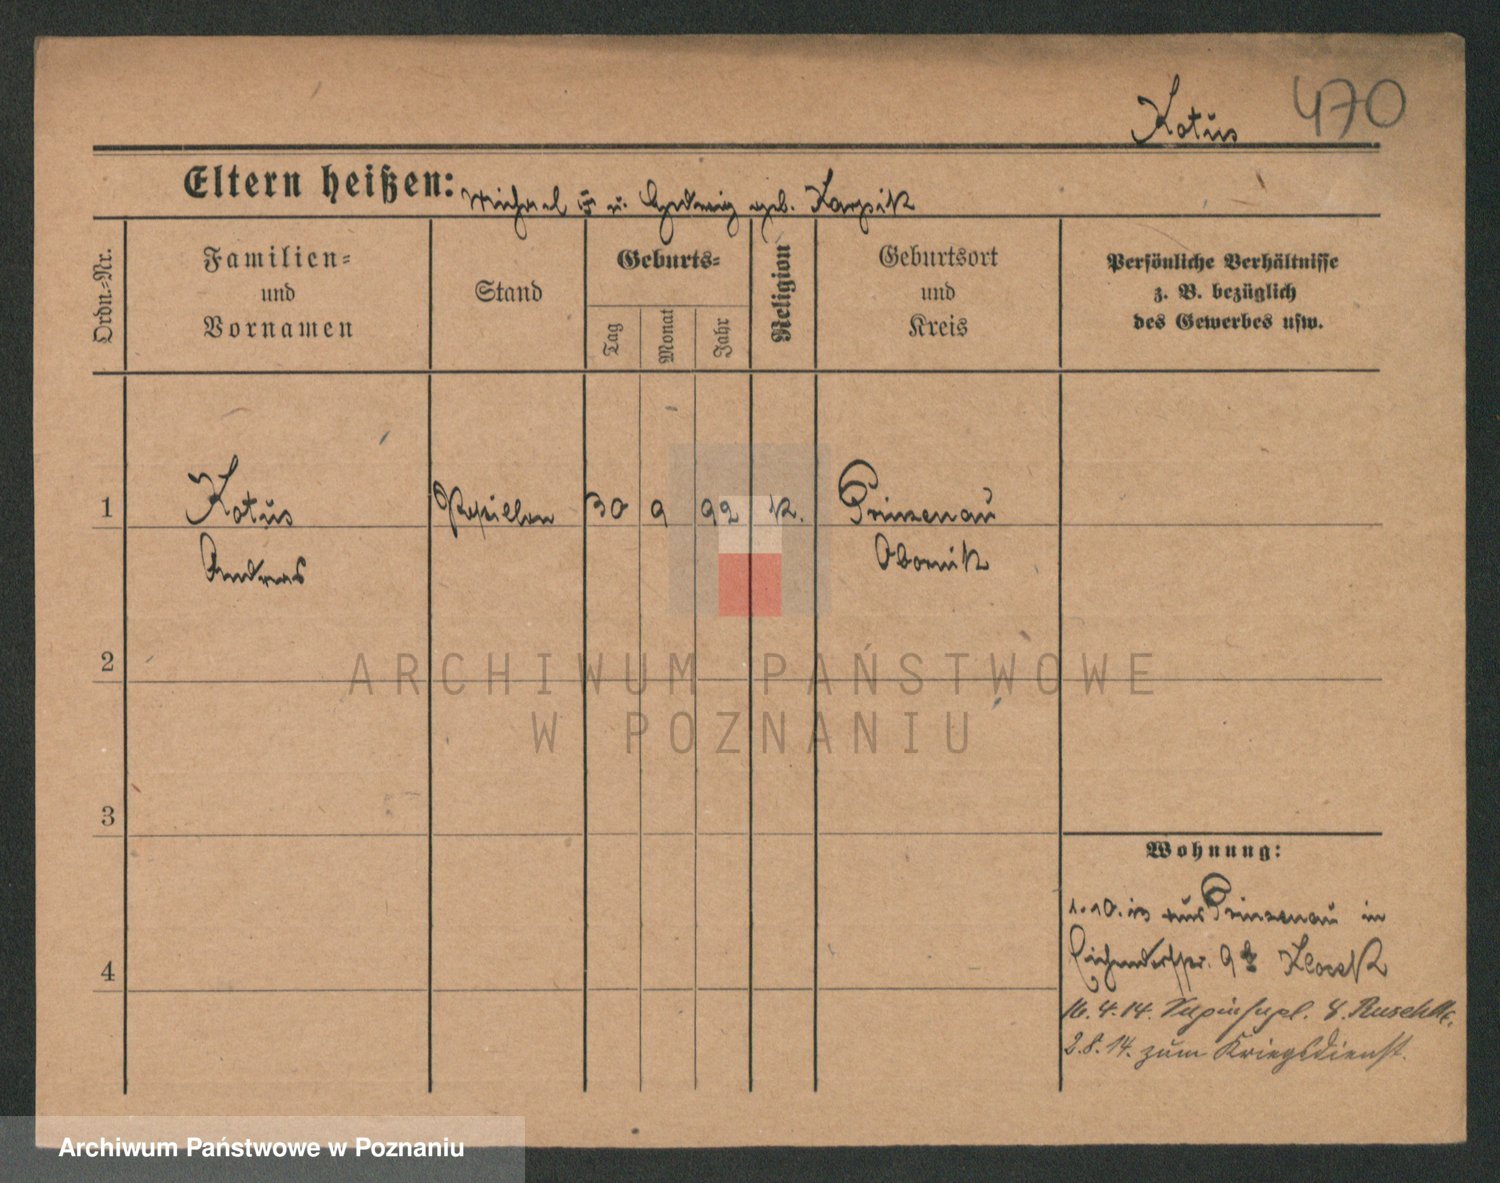 Kotus 470
Eltern heißen: Michael u. Hedwig geb. Karpik
Ordn.-Nr.
Familien-
und
Vornamen
Stand
Geburts-
Tag
Monat
Jahr
Religion
Geburtsort
und
Kreis
Persönliche Verhältnisse
z. B. bezüglich
des Gewerbes usw.
1 Kotus 30 9 92 K. Prinzenau
Andreas Obornik
2
3
4
Wohnung:
1.10.13 aus Prinzenau in
9
16.4.14. 8.
2.8.14. zum Kriegsdienst.
ARCHIWUM PAŃSTWOWE
W POZNANIU
Archiwum Państwowe w Poznaniu